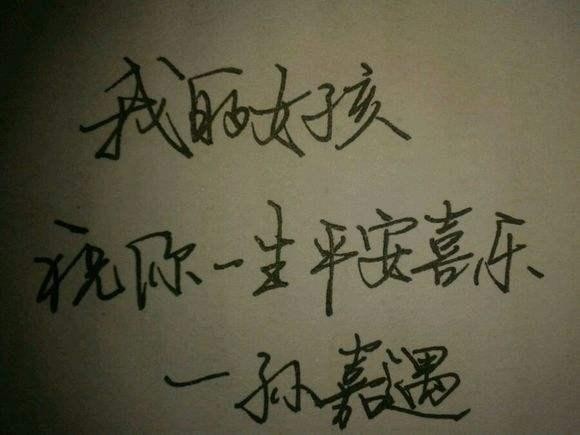 我的女孩
祝你一生平安喜乐
一孙嘉遇